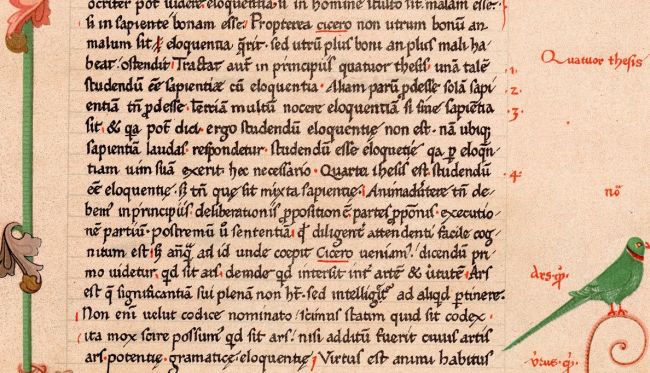 ocriter pot uidere. eloquentia ū in homine stulto sit malam esse.
si in sapiente bonam esse. Propterea cicero non utrum bonū an
malum sit eloquentia q̄rit. sed utrū plus boni an plus mali ha
beat. ostendit. Tractat aut̄ in principiis quatuor thesis. unā talē
studendū eē sapientiæ cū eloquentia. Aliam parū pdesse solā sapi
entiā tn̄ pdesse. terciā multū nocere eloquentiā si sine sapiētia
sit. & qa pot̄ dici ergo studendū eloquentiæ non est. nā ubiq;
sapientiā laudas. respondetur. studendū esse eloquētię qa p eloqn̄
tiam uim suā exerit. hec necessario. Quarta thesis est studendū
eē eloquentię. s; tn̄ que sit mixta sapientię. Animaduertere tn̄ de
bem' in principiis deliberationis ppositionē. partes pponis. executio
nē partiū. postremū ū sententiā. q̄ diligent attendenti facile cog
nitum est. s; anq̄ ad id unde coepit Cicero ueniam'. dicendū pri
mo uidetur. qd sit ars. deinde qd intersit int artē & uirtutē. Ars
est q̄ significantiā sui plenā non h̄t. sed intelligit ad aliqd ptinere.
Non eni uelut codice nominato scimus statim quid sit codex.
ita mox scire possum' qd sit ars. nisi additū fuerit cuius artis
ars potentię. gramaticę. eloquentię. Virtus est animi habitus
Quatuor thesis
.1.
.2.
.3.
.4.
no
Ars. q.
Virtus. q.